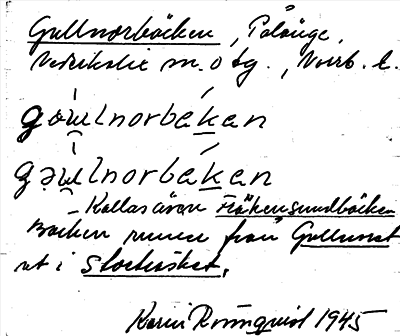 Gullnorbäcken, Pålänge,
Nederkalix sn. o tg., Norrb. l.
gɷɯlnorbakan
gəɯlnorbakan
Kallas även Fräkensundbäcken
Bäcken rinner från Gullmost
ut i Storträsket.
Karin Rosinqvist 1945